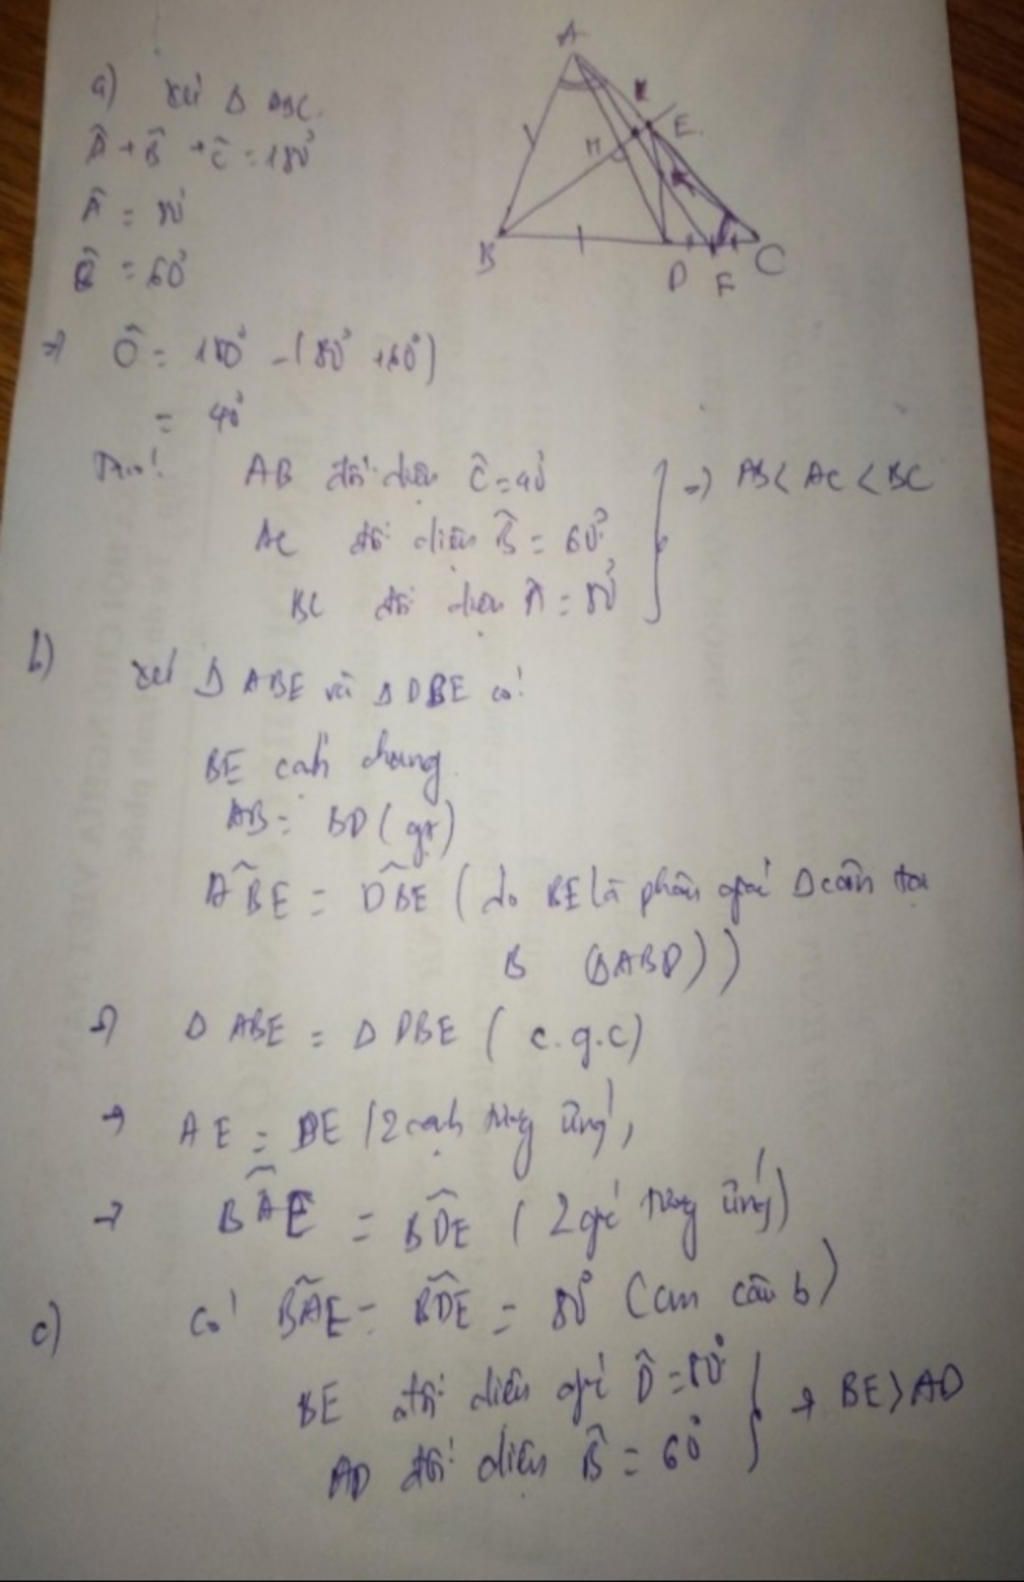 A
E
H
K
B
D
F
C
a) Xét Δ ABC.
Â + B̂ + Ĉ = 180°
Â = 80°
B̂ = 60°
=> Ĉ = 180° - (80° + 60°)
= 40°
AB đối diện Ĉ = 40°
AC đối diện B̂ = 60°
BC đối diện Â = 80°
=> AB < AC < BC
b) Xét Δ ABE và Δ DBE có:
BE cạnh chung
AB = BD (gt)
ABE = DBE (do BE là phân giác Δ cân tại
B (ΔABD))
=> Δ ABE = Δ DBE (c.g.c)
→ AE = DE (2 cạnh tương ứng)
→ BAE = BDE (2 góc tương ứng)
c) Có BAE = BDE = 80° (cm câu b)
BE đối diện góc D̂ = 80°
AD đối diện B̂ = 60°
→ BE > AD